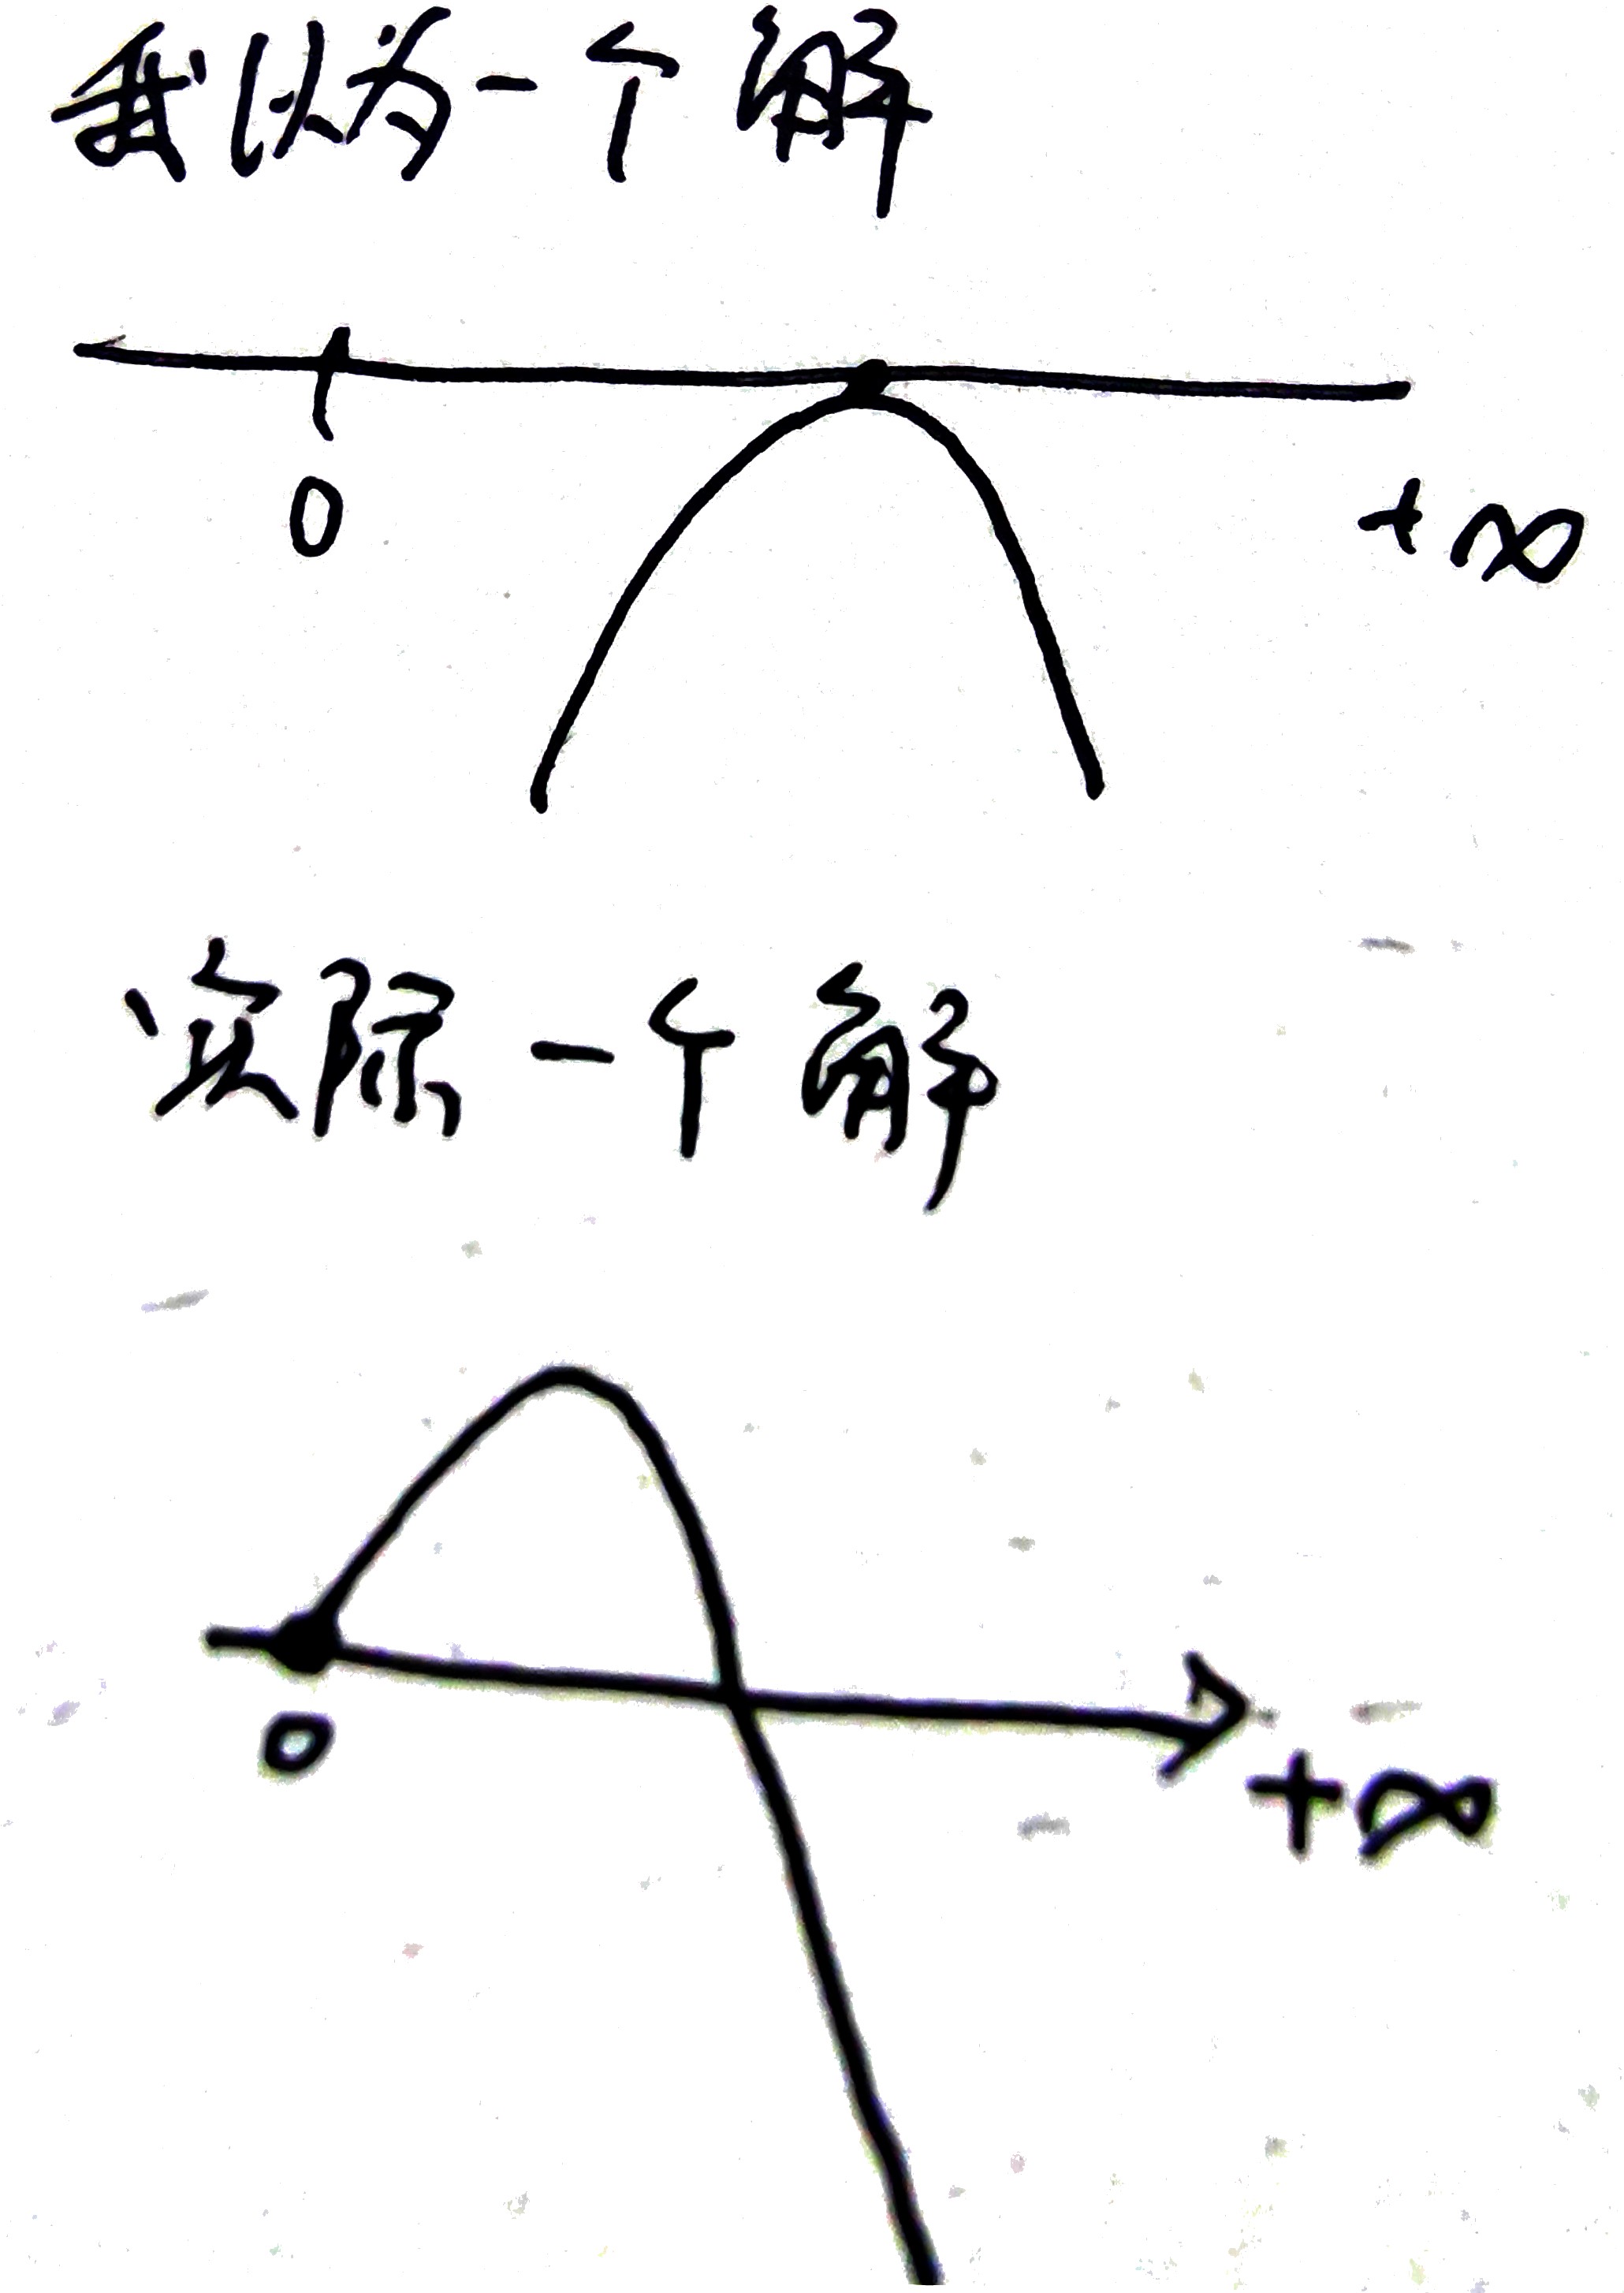 我以为一个解
0
+∞
实际一个解
0
+∞